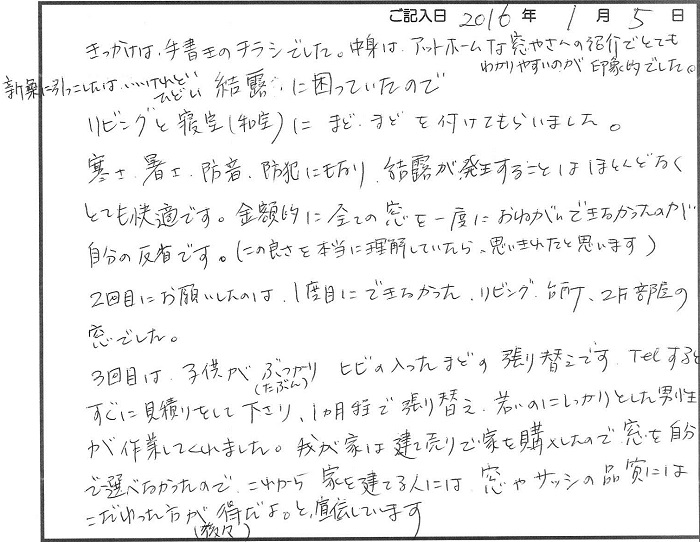 ご記入日 2016 年 1 月 5 日
きっかけは、手書きのチラシでした。中身は、アットホームな窓やさんの紹介でとても
わかりやすいのが印象的でした。
新築に引っこしたは、いいけれど ひどい 結露 に困っていたので
リビングと寝室(和室)に まどまど を付けてもらいました。
寒さ、暑さ、防音、防犯にもなり、結露が発生することはほとんどなく
とても快適です。金額的に全ての窓を一度におねがいできなかったのが
自分の反省です。(この良さを本当に理解していたら、思いきれたと思います)
2回目にお願いしたのは、1度目にできなかった、リビング、台所、2F部屋の
窓でした。
3回目は、子供が ぶつかり ヒビの入ったまどの 張り替えです。Telすると
(たぶん)
すぐに見積りをして下さり、1ヵ月程で張り替え、若いのにしっかりとした男性
が作業してくれました。我が家は建て売りで家を購入したので、窓を自分
で選べなかったので、これから 家を建てる人には、窓やサッシの品質には
こだわった方が 得だよ。と、宣伝しています
(後々)